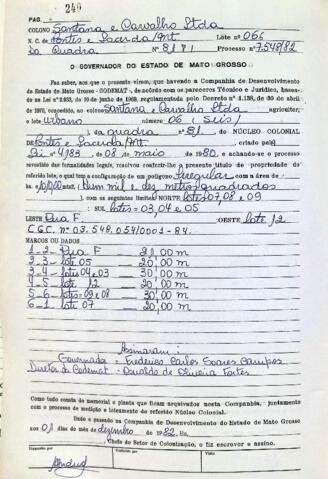 240
PAG.
COLONO Santana e Carvalho Ltda
N. C. de Pontes e Lacerda/Mt Lote nº 066
da Quadra nº 81 Processo nº 7.548/82
O GOVERNADOR DO ESTADO DE MATO GROSSO
Faz saber, aos que o presente virem, que havendo a Companhia de Desenvolvimento
do Estado de Mato Grosso - CODEMAT, de acôrdo com os pareceres Técnico e Jurídico, basea-
dos na Lei nº 2.933, de 10 de junho de 1969, regulamentada pelo Decreto nº 1.138, de 30 de abril
de 1970, concedido ao colono Santana e Carvalho Ltda agricultor,
o lote urbano número 06 (Seis)
da quadra nº 81. DO NÚCLEO COLONIAL
de Pontes e Lacerda/Mt. criado pela
Lei 4.183 de 08 de maio de 19 80, e achando-se o processo
revestido das formalidades legais, resolveu conferir-lhe o presente título de propriedade do
referido lote, o qual tem a configuração de um polígono Irregular com a área de
(hum mil e dez metros quadrados
com os seguintes limites: NORTE lotes 07, 08 e 09
SUL lotes = 03, 04 e 05
LESTE Rua F. OESTE lote 12
C.G.C. nº 03.548.054/0001-84.
MARCOS OU DADOS
1 - 2 - Rua F - 21,00 m
2 - 3 - lote 05 - 20,00 m
3 - 4 - lotes 04 e 03 - 30,00 m
4 - 5 - lote 12 - 20,00 m
5 - 6 - lotes = 09 e 08 - 30,00 m
6 - 1 - lote 07 - 20,00 m
Assinaram:
Governador = Frederico Carlos Soares Campos
Diretor da Codemat - Osvaldo de Oliveira Fortes
Como tudo consta do memorial e planta que ficam arquivados nesta Companhia, juntamente
com o processo de medição e loteamento do referido Núcleo Colonial.
Dado e passado na Companhia de Desenvolvimento do Estado de Mato Grosso
aos 01 dias do mês de dezembro de 19 82. Eu
Chefe do Setor de Colonização, o fiz escrever e assino.